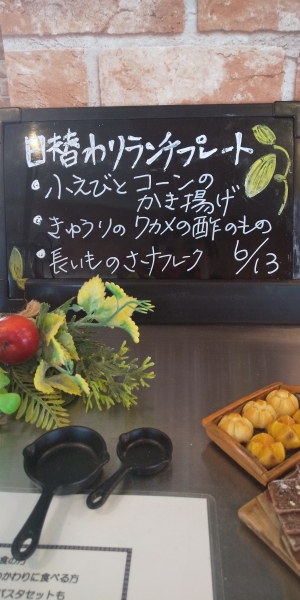 日替わりランチプレート
・小えびとコーンの
かき揚げ
・きゅうりのワカメの酢のもの
・長いものさ
6/13
食の方
わりに食べる方
パスタセットも